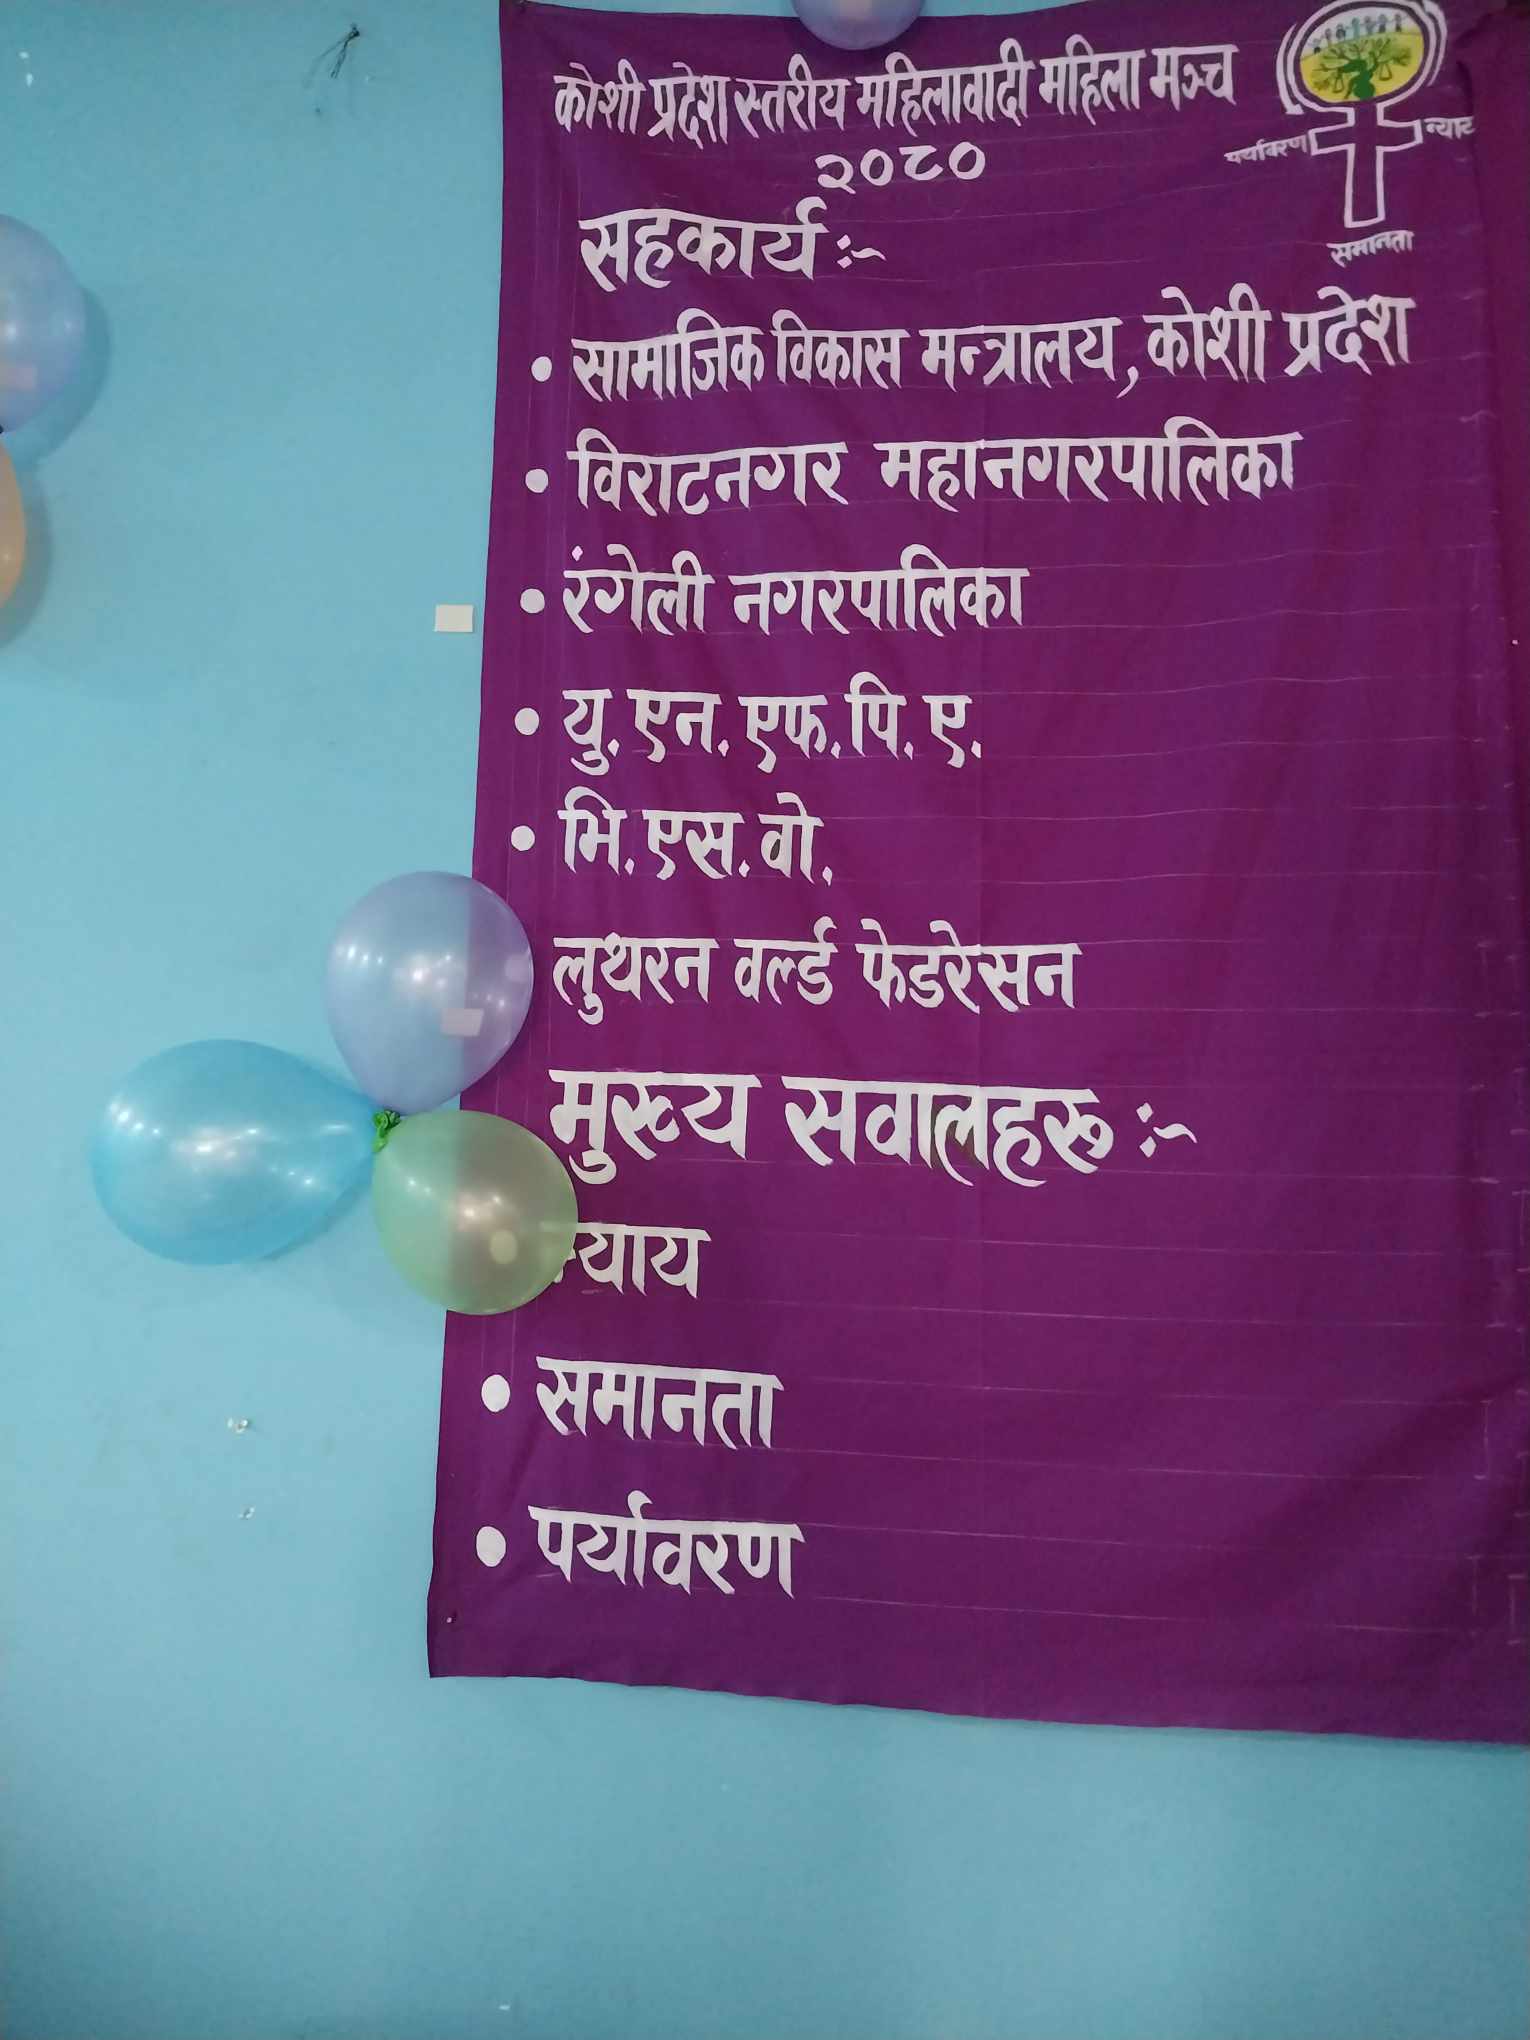 कोशी प्रदेश स्तरीय महिलावादी महिला मञ्च
२०८०
पर्यावरण
समानता
सहकार्य :-
• सामाजिक विकास मन्त्रालय, कोशी प्रदेश
• विराटनगर महानगरपालिका
• रंगेली नगरपालिका
• यु. एन. एफ. पि. ए.
• भि. एस. वो.
लुथरन वर्ल्ड फेडरेसन
मुख्य सवालहरू :-
न्याय
• समानता
• पर्यावरण